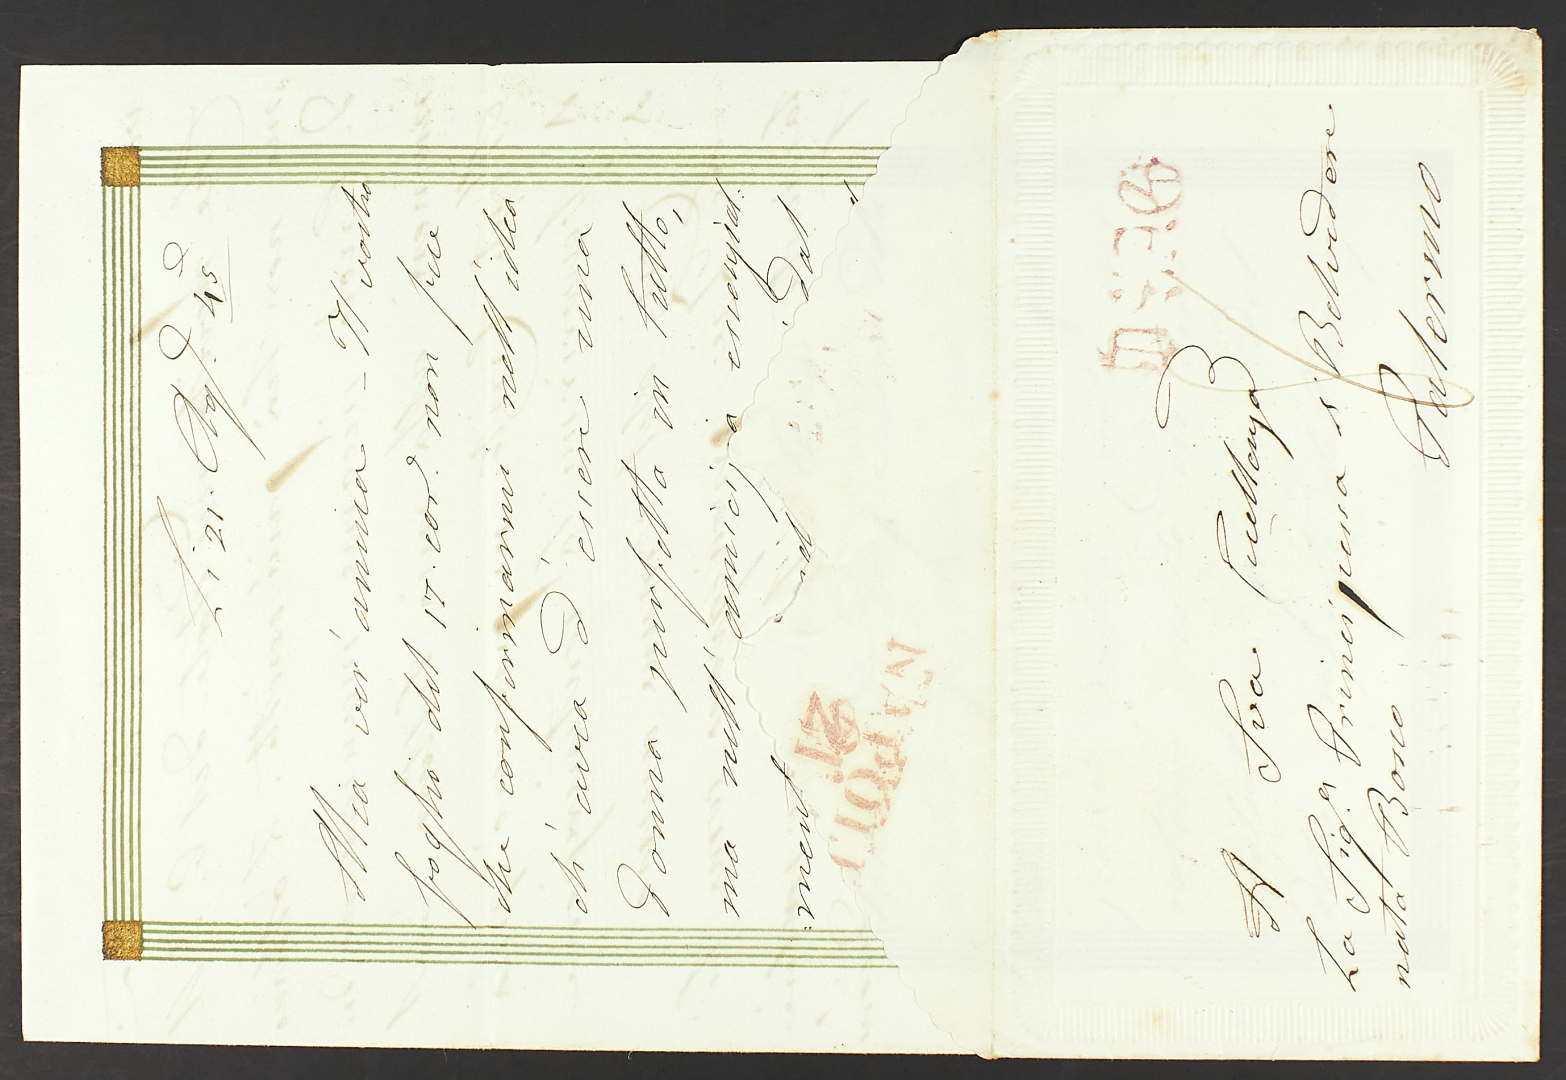 Li 21. Ag.º 45
Mia ver' amica - Il vostro
foglio del 17. cor.e non fu
che confermarmi nell'idea
ch' avea d' essere una
donna perfetta in tutto,
ma nell' amicizia
:ment dal
21
NAPOLI
A Sua Eccellenza
La Sig.a Principessa di Belvidere
nata Bosco Palermo